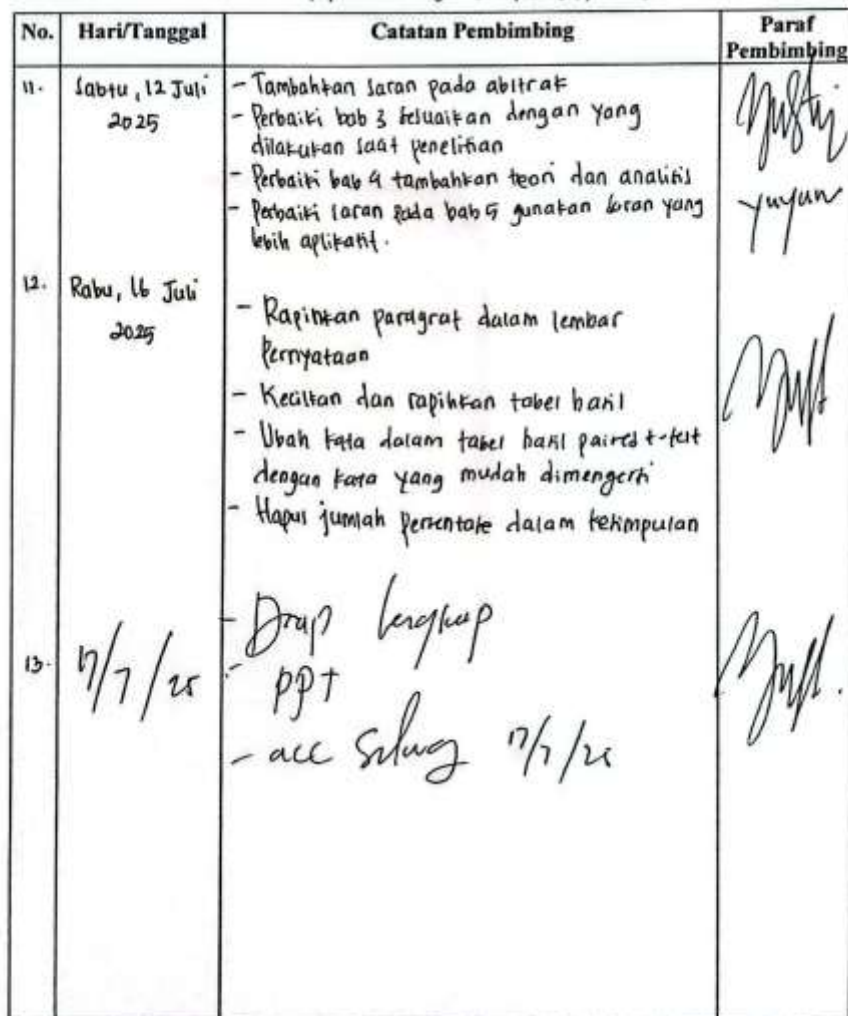 No. Hari/Tanggal Catatan Pembimbing Paraf Pembimbing
11. Sabtu, 12 Juli 2025
- Tambahkan saran pada abstrak
- Perbaiki bab 3 sesuaikan dengan yang
dilakukan saat penelitian
- Perbaiki bab 4 tambahkan teori dan analisis
- Perbaiki saran pada bab 5 gunakan saran yang
lebih aplikatif.
yuyun
12. Rabu, 16 Juli 2025
- Rapihkan paragraf dalam lembar
Pernyataan
- Kecilkan dan rapihkan tabel hasil
- Ubah kata dalam tabel hasil paired t-test
dengan kata yang mudah dimengerti
- Hapus jumlah persentase dalam kesimpulan
13. 17/7/25
- Drap lengkap
- PPT
- acc 17/7/25